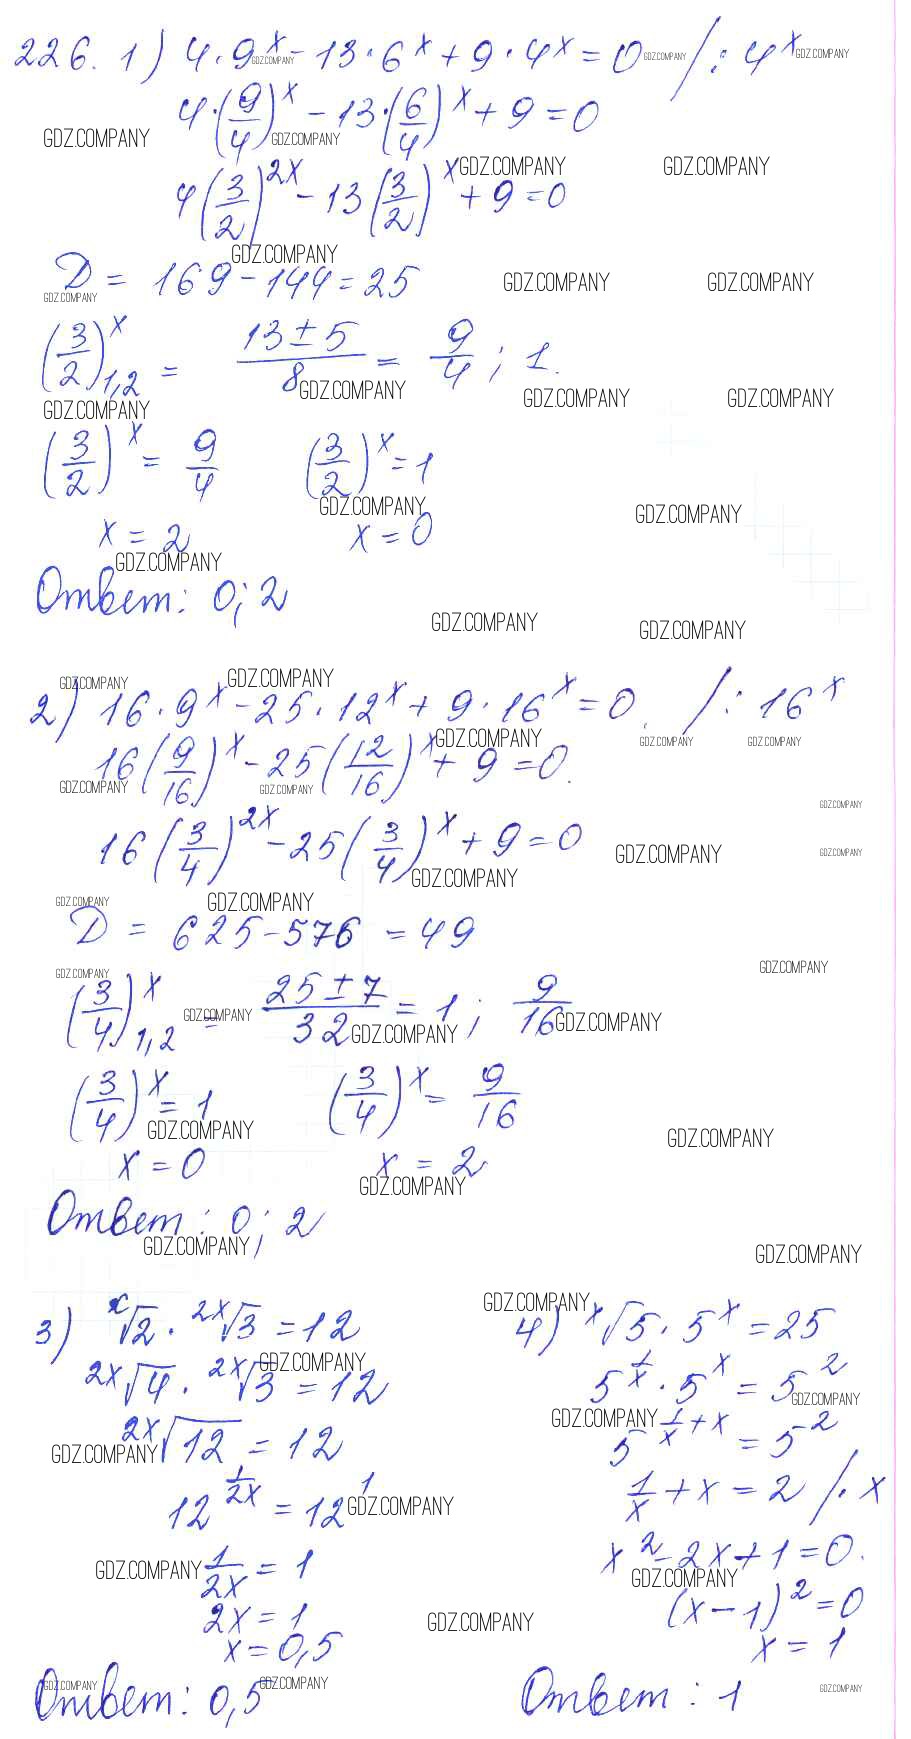 226. 1) 4·9^x - 13·6^x + 9·4^x = 0 /:4^x
4·(9/4)^x - 13·(6/4)^x + 9 = 0
4(3/2)^2x - 13(3/2)^x + 9 = 0
D = 169 - 144 = 25
(3/2)^x 1,2 = (13 ± 5)/8 = 9/4 ; 1.
(3/2)^x = 9/4 (3/2)^x = 1
x = 2 x = 0
Ответ: 0; 2
2) 16·9^x - 25·12^x + 9·16^x = 0. /:16^x
16(9/16)^x - 25(12/16)^x + 9 = 0.
16(3/4)^2x - 25(3/4)^x + 9 = 0
D = 625 - 576 = 49
(3/4)^x 1,2 = (25 ± 7)/32 = 1 ; 9/16
(3/4)^x = 1 (3/4)^x = 9/16
x = 0 x = 2
Ответ: 0; 2
3) ^x√2 · ^2x√3 = 12
^2x√4 · ^2x√3 = 12
^2x√12 = 12
12^(1/2x) = 12^1
1/2x = 1
2x = 1
x = 0,5
Ответ: 0,5
4) ^x√5 · 5^x = 25
5^(1/x) · 5^x = 5^2
5^(1/x + x) = 5^2
1/x + x = 2 /·x
x^2 - 2x + 1 = 0.
(x - 1)^2 = 0
x = 1
Ответ: 1
GDZ.COMPANY